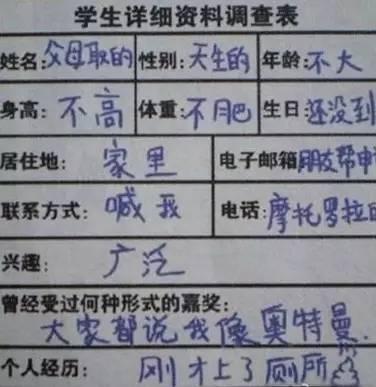 学生详细资料调查表
姓名:父母取的 性别:天生的 年龄:不大
身高:不高 体重:不肥 生日 还没到
居住地:家里 电子邮箱 朋友帮申
联系方式:喊我 电话:摩托罗拉的
兴趣:广泛
曾经受过何种形式的嘉奖:
大家都说我像奥特曼.
个人经历:刚才上了厕所